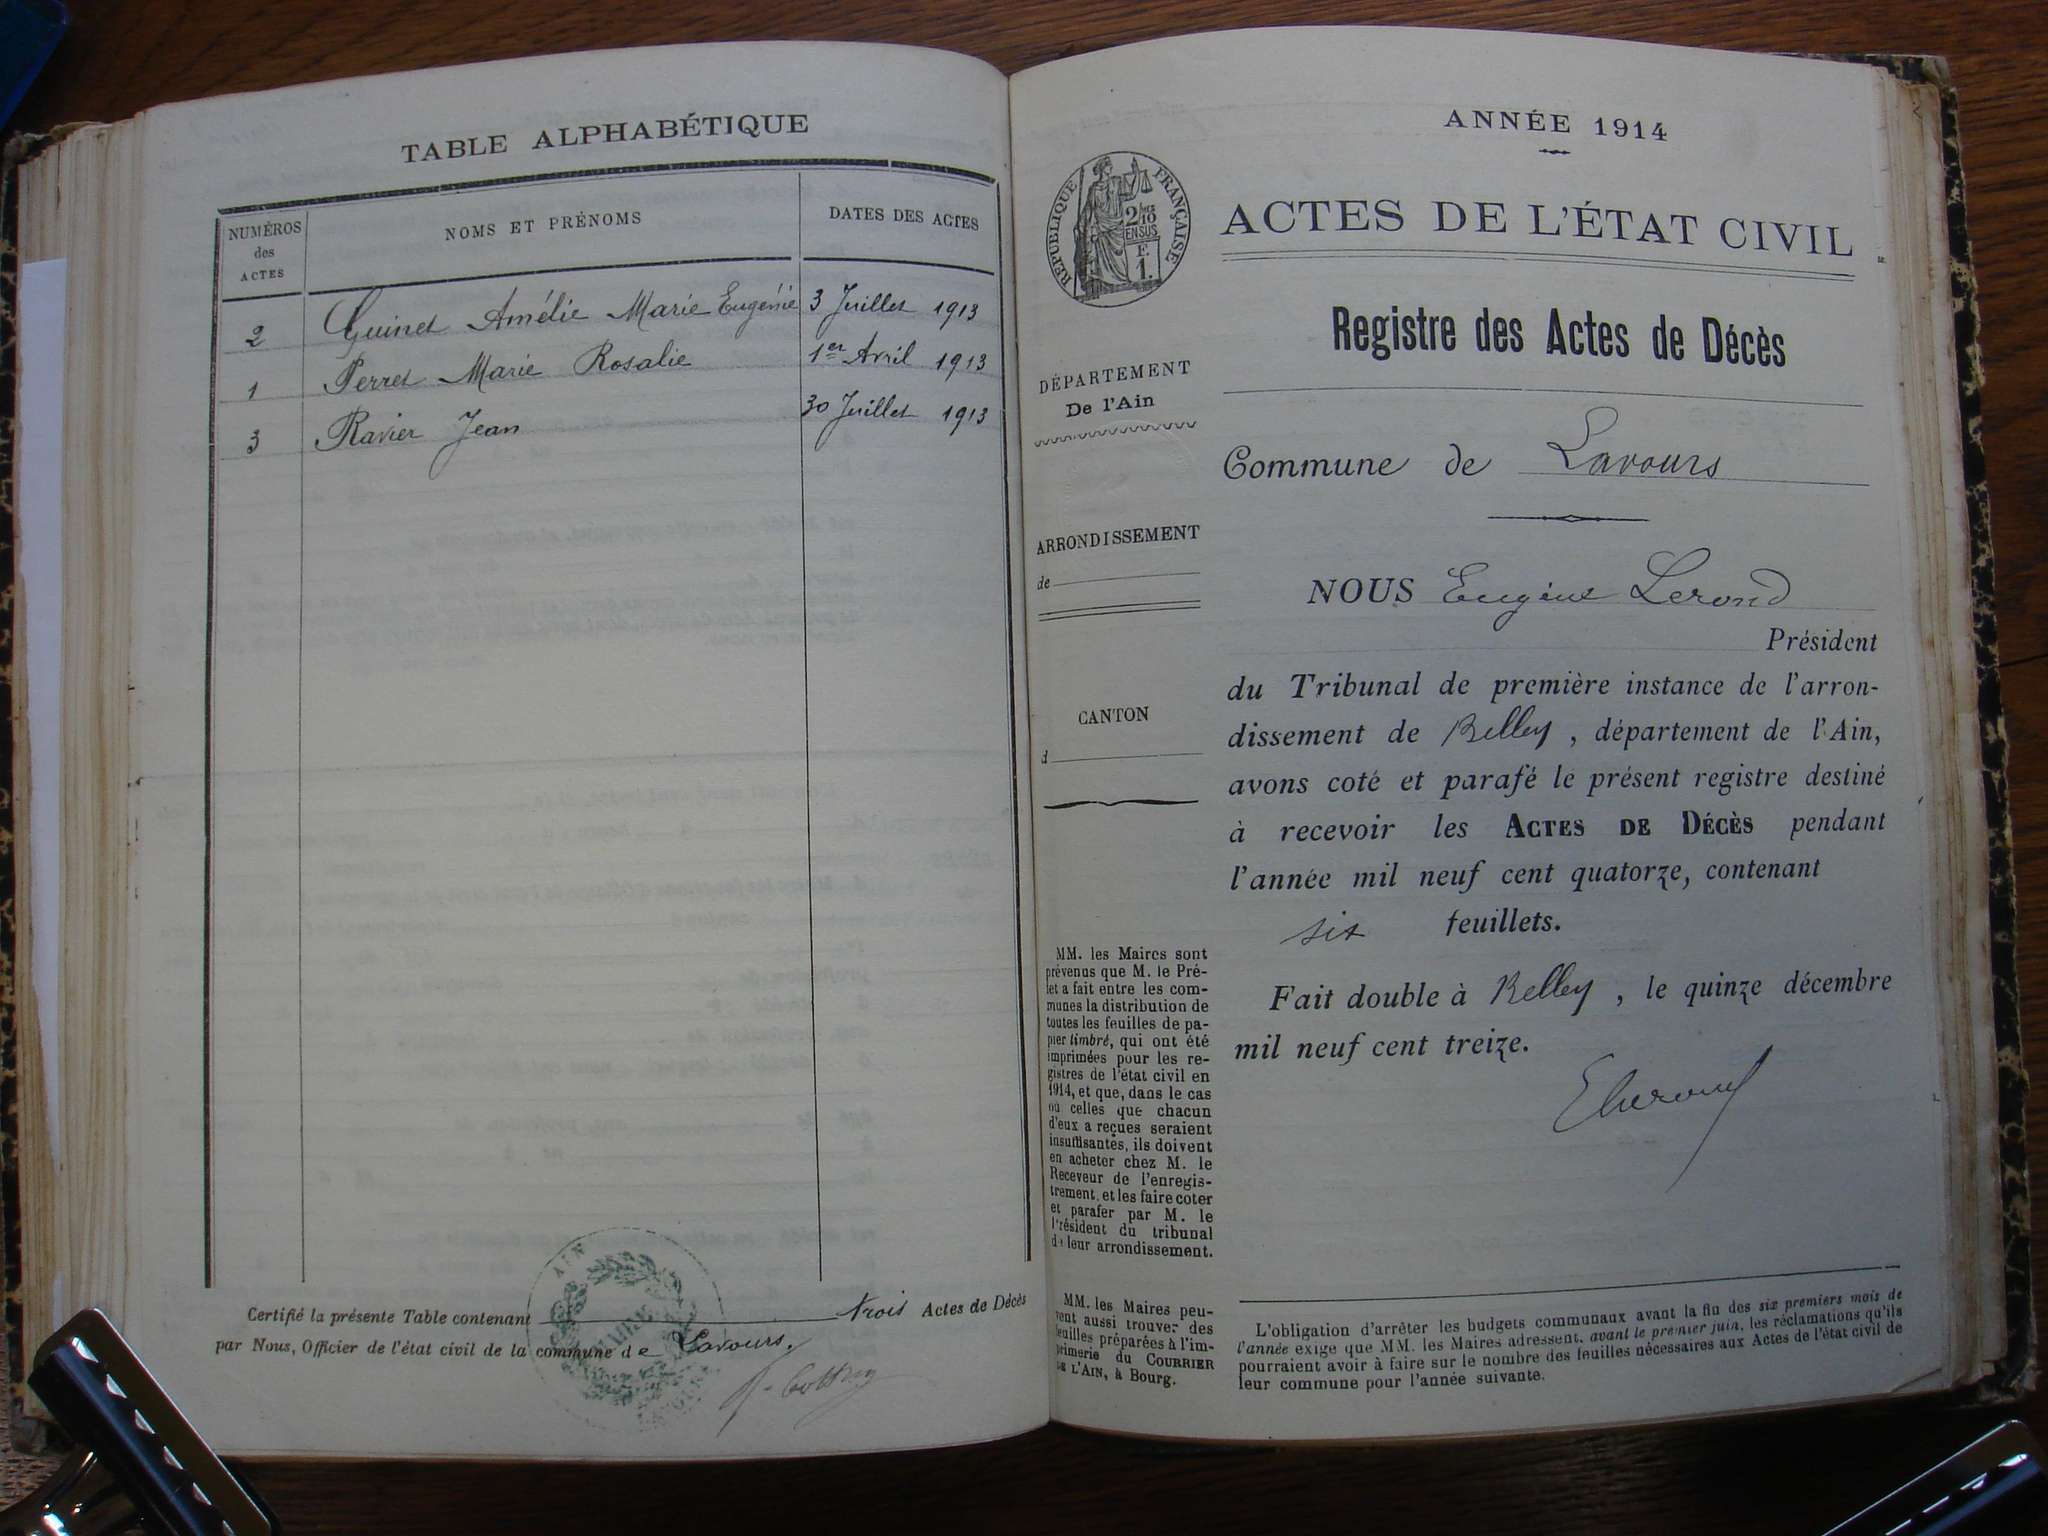 TABLE ALPHABÉTIQUE
NUMÉROS
des
ACTES
NOMS ET PRÉNOMS
DATES DES ACTES
2 Guinet Amélie Marie Eugénie 3 Juillet 1913
1 Perret Marie Rosalie 1er Avril 1913
3 Ravier Jean 30 Juillet 1913
Certifié la présente Table contenant trois Actes de Décès
par Nous, Officier de l'état civil de la commune de Lavours.
AIN
MAIRIE
ANNÉE 1914
RÉPUBLIQUE FRANÇAISE
2/10
EN SUS
F.
1.
ACTES DE L'ÉTAT CIVIL
Registre des Actes de Décès
DÉPARTEMENT
De l'Ain
Commune de Lavours
ARRONDISSEMENT
de
NOUS Eugène Lerond
Président
du Tribunal de première instance de l'arron-
dissement de Belley, département de l'Ain,
avons coté et parafé le présent registre destiné
à recevoir les ACTES DE DÉCÈS pendant
l'année mil neuf cent quatorze, contenant
six feuillets.
Fait double à Belley, le quinze décembre
mil neuf cent treize.
CANTON
d
MM. les Maires sont
prévenus que M. le Pré-
fet a fait entre les com-
munes la distribution de
toutes les feuilles de pa-
pier timbré, qui ont été
imprimées pour les re-
gistres de l'état civil en
1914, et que, dans le cas
où celles que chacun
d'eux a reçues seraient
insuffisantes, ils doivent
en acheter chez M. le
Receveur de l'enregis-
trement, et les faire coter
et parafer par M. le
Président du tribunal
de leur arrondissement.
MM. les Maires peu-
vent aussi trouver des
feuilles préparées à l'im-
primerie du COURRIER
DE L'AIN, à Bourg.
L'obligation d'arrêter les budgets communaux avant la fin des six premiers mois de
l'année exige que MM. les Maires adressent, avant le premier juin, les réclamations qu'ils
pourraient avoir à faire sur le nombre des feuilles nécessaires aux Actes de l'état civil de
leur commune pour l'année suivante.